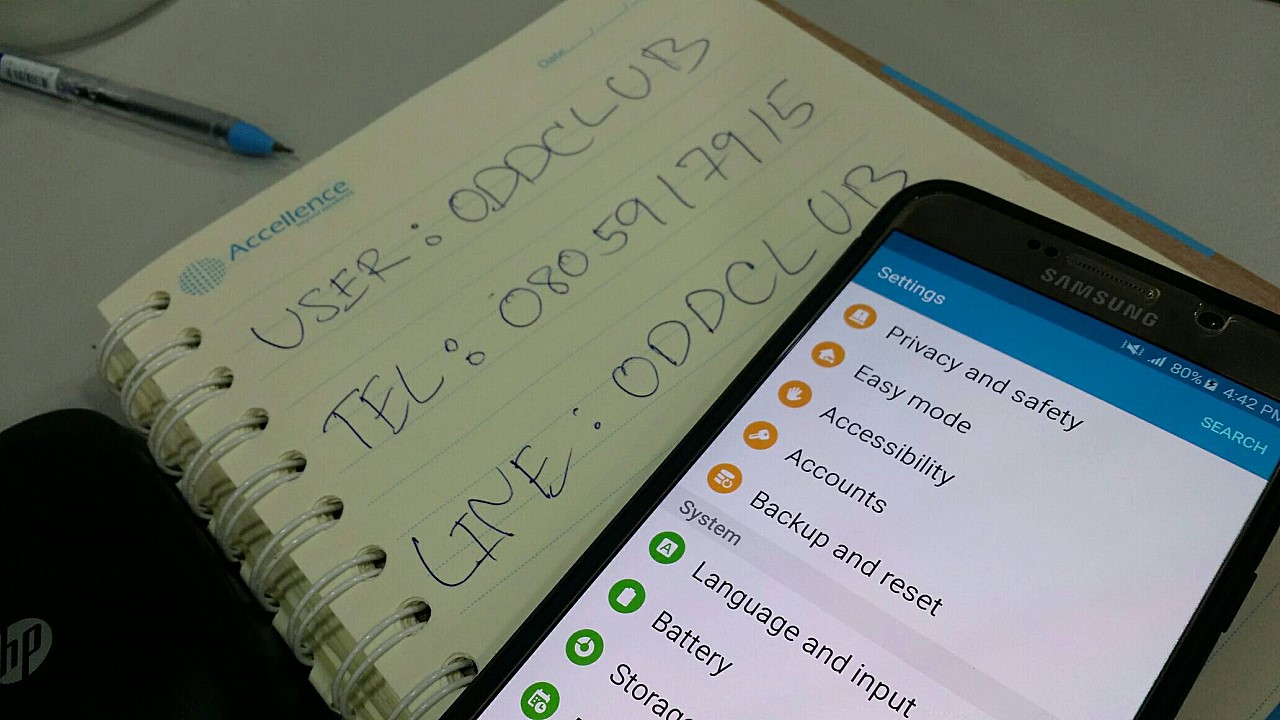 Date / /
Accellence
USER : ODDCLUB
TEL : 0805917915
LINE : ODDCLUB
SAMSUNG
80% 4:42 PM
Settings
SEARCH
Privacy and safety
Easy mode
Accessibility
Accounts
Backup and reset
System
Language and input
Battery
Storage
hp